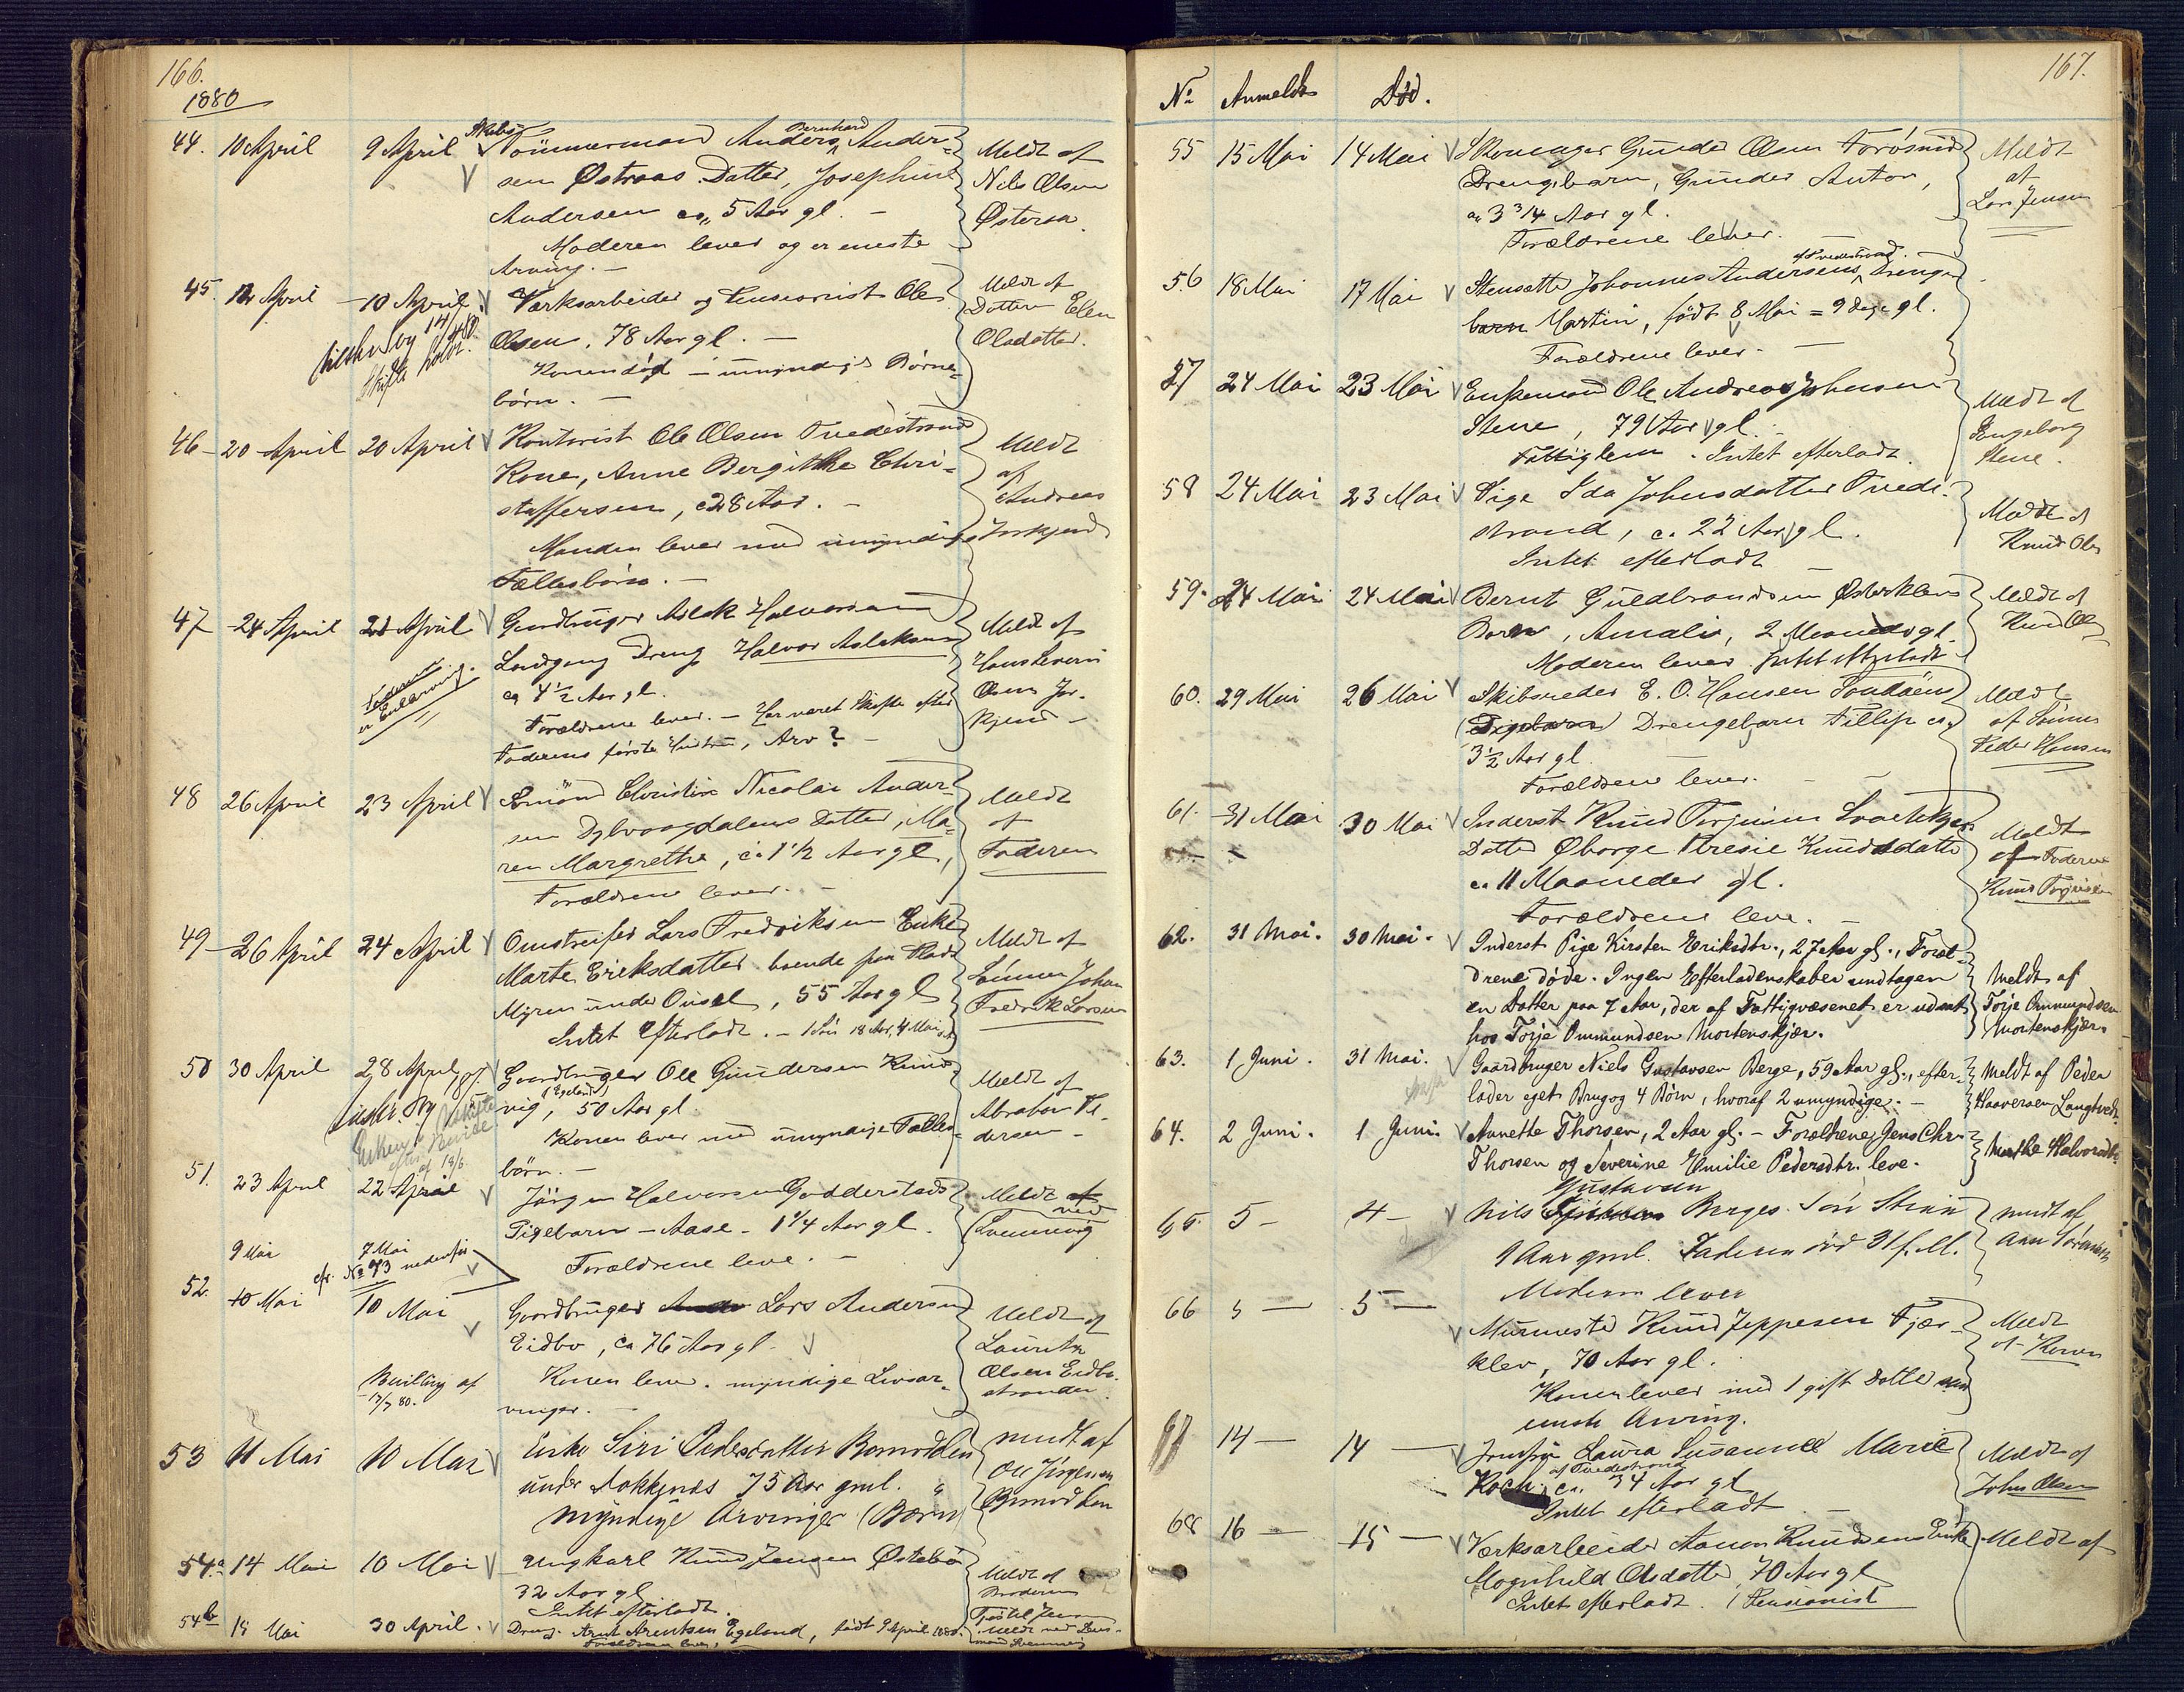 166.
1880
44. 10 April 9 April Skibs Tømmermand Anders Bernhard Ander-
sen Østeraas Datter, Josephine
Andersen ca. 5 Aar gl. –
Moderen lever og er eneste
Arving. –
Meldt af
Nils Olsen
Østeraa.
45. 12 April – 10 April Værksarbeider og Pensionist Ole
Olsen, 78 Aar gl. –
Konen død – umyndige Børne-
børn. –
Skifte holdt.
Meldt af
Datteren Elen
Olsdatter.
46 – 20 April 20 April Kontorist Ole Olsen Tvedestrand
Kone, Anne Bergitthe Chri-
stoffersen, ca 28 Aar. –
Manden lever med umyndige
Fællesbørn. –
Meldt
af
Andreas
47 – 24 April 21 April Gaardbruger Aslak Halvorsen
Landgang Dreng Halvor Aslaksen
ca 4 1/2 Aar gl.
Forældrene lever. – Har været Skifte efter
Faderens første Hustru, Arv? –
Faderen
er Enearving.
Meldt af
Hans Severin
Olsen
48 26 April 23 April Sømand Christian Nicolai Ander-
sen Dybvaagdalens Datter, Ma-
ren Margrethe, ca 1 1/2 Aar gl,
Forældrene lever. –
Meldt
af
Faderen
49 – 26 April 24 April Omstreifer Lars Fredriksens Enke
Marte Eriksdatter boende paa Plads
Myren under 55 Aar gl
Intet Efterladt. – 1 Søn 18 Aar,
Meldt af
Sønnen Johan
Fredrik Larsen
50 30 April 28 April Gaardbruger Ole Gundersen
(Egeland) 50 Aar gl
Konen lever med umyndige Fælles-
børn. –
Meldt af
Abraham Pe-
dersen –
51. 23 April 22 April Jørgen Halvorsen Godderstads
Pigebarn – Aase – 1 1/4 Aar gl.
Forældrene leve. –
Meldt af
ved
9 Mai 7 Mai
cfr. No 73 nedenfor
52. 10 Mai 10 Mai Gaardbruger Lars Andersen
Eidbo, ca 76 Aar gl.
Konen lever. myndige Livsar-
vinger. –
Bevilling af
Meldt af
Lauritz
Olsen Eidbo-
stranden.
53 11 Mai 10 Mai Enke Siri Pedersdatter Bomodden
under 75 Aar gml.
Myndige Arvinger (Børn)
meldt af
Ole Jørgensen
Bomodden
54a 14 Mai 10 Mai Ungkarl Knud Jensen Østebø
32 Aar gl
Intet efterladt.
Meldt af
Broderen
54b 15 Mai 30 April. Dreng Arnt Arentsen Egeland, født 9 April 1880.
Forældrene lever.
Meldt ved Lens-
mand
167.
No Anmeldt Død.
55 15 Mai 14 Mai Skomager Gunder Olsen
Drengebarn, Gunder Anton,
ca 3 3/4 Aar gl.
Forældrene lever.
Meldt
af
Lars Jensen
56 18 Mai 17 Mai Stensætter Johannes Andersens af Tvedestrand Drenge
barn Martin, født 8 Mai = 9 dage gl.
Forældrene lever. –
57 24 Mai 23 Mai Enkemand Ole Andreas Johnsen
Stene, 79 Aar gl. –
Fattiglem. Intet efterladt.
Meldt af
Engeborg
Stene.
58 24 Mai 23 Mai Pige Ida Johnsdatter Tvede-
strand, ca. 22 Aar gl.
Intet efterladt –
Meldt af
Knud Ols
59. 24 Mai 24 Mai Bernt Guldbrandsen Østerklevs
Barn, Amalie, 2 Maaneder gl.
Moderen lever. Intet efterladt
Meldt af
Knud Ols
60. 29 Mai 26 Mai Skibsreder E. O. Hansen
(Pigebarn) Drengebarn Fillip ca
3 1/2 Aar gl
Forældrene lever. –
Meldt
af Sønnen
Peder Hansen
61. 31 Mai 30 Mai Inderst Knud Torjusen
Datter Øborge Tresie Knudsdatter
ca 11 Maaneder gl.
Forældrene leve. –
Meldt
af Faderen
Knud Torjusen
62. 31 Mai. 30 Mai. Inderst Pige Kirsten Eriksdtr., 27 Aar gl., Foræl-
drene døde. Ingen Efterladenskaber undtagen
en Datter paa 7 Aar, der af Fattigvæsenet er udsat
hos Torje Ommundsen Mortenskjær.
Meldt af
Torje Ommundsen
Mortenskjær.
63. 1 Juni. 31 Mai. Gaardbruger Niels Gustavsen Berge, 59 Aar gl., efter-
lader eget Brug og 4 Børn, hvoraf 2 umyndige. –
Meldt af Peder
Haaversen Langtvedt.
64. 2 Juni. 1 Juni. Annette Thorsen, 2 Aar gl. – Forældrene, Jens Chr.
Thorsen og Severine Emilie Pedersdtr. leve.
Marthe Halvorsdtr.
65. 5 – 4 – Nils Gustavsen Berges Søn
9 Aar gml. Faderen død 31 f. M.
Moderen lever
meldt af
66 5 – 5 – Murmester Knud Jeppesen Fjær-
klev, 70 Aar gl.
Konen lever med 1 gift Datter som
eneste Arving.
Meldt
af Konen
67 14 – 14 – Jomfru Laura Susanne Marie
Koch af Tvedestrand, ca. 34 Aar gl
Intet efterladt –
Meldt af
John Olsen
68 16 – 15 – Værksarbeider Aanon Knudsens Enke
Magnhild Olsdatter, 70 Aar gl
Intet efterladt. / Pensionist
Meldt af